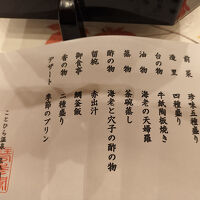 前菜　珍味五種盛り
造里　四種盛り
台の物　牛紙陶板焼き
油物　海老の天婦羅
蒸物　茶碗蒸し
酢の物　海老と穴子の酢の物
留椀　赤出汁
御食事　鯛釜飯
香の物　二種盛り
デザート　季節のプリン
ことひら温泉